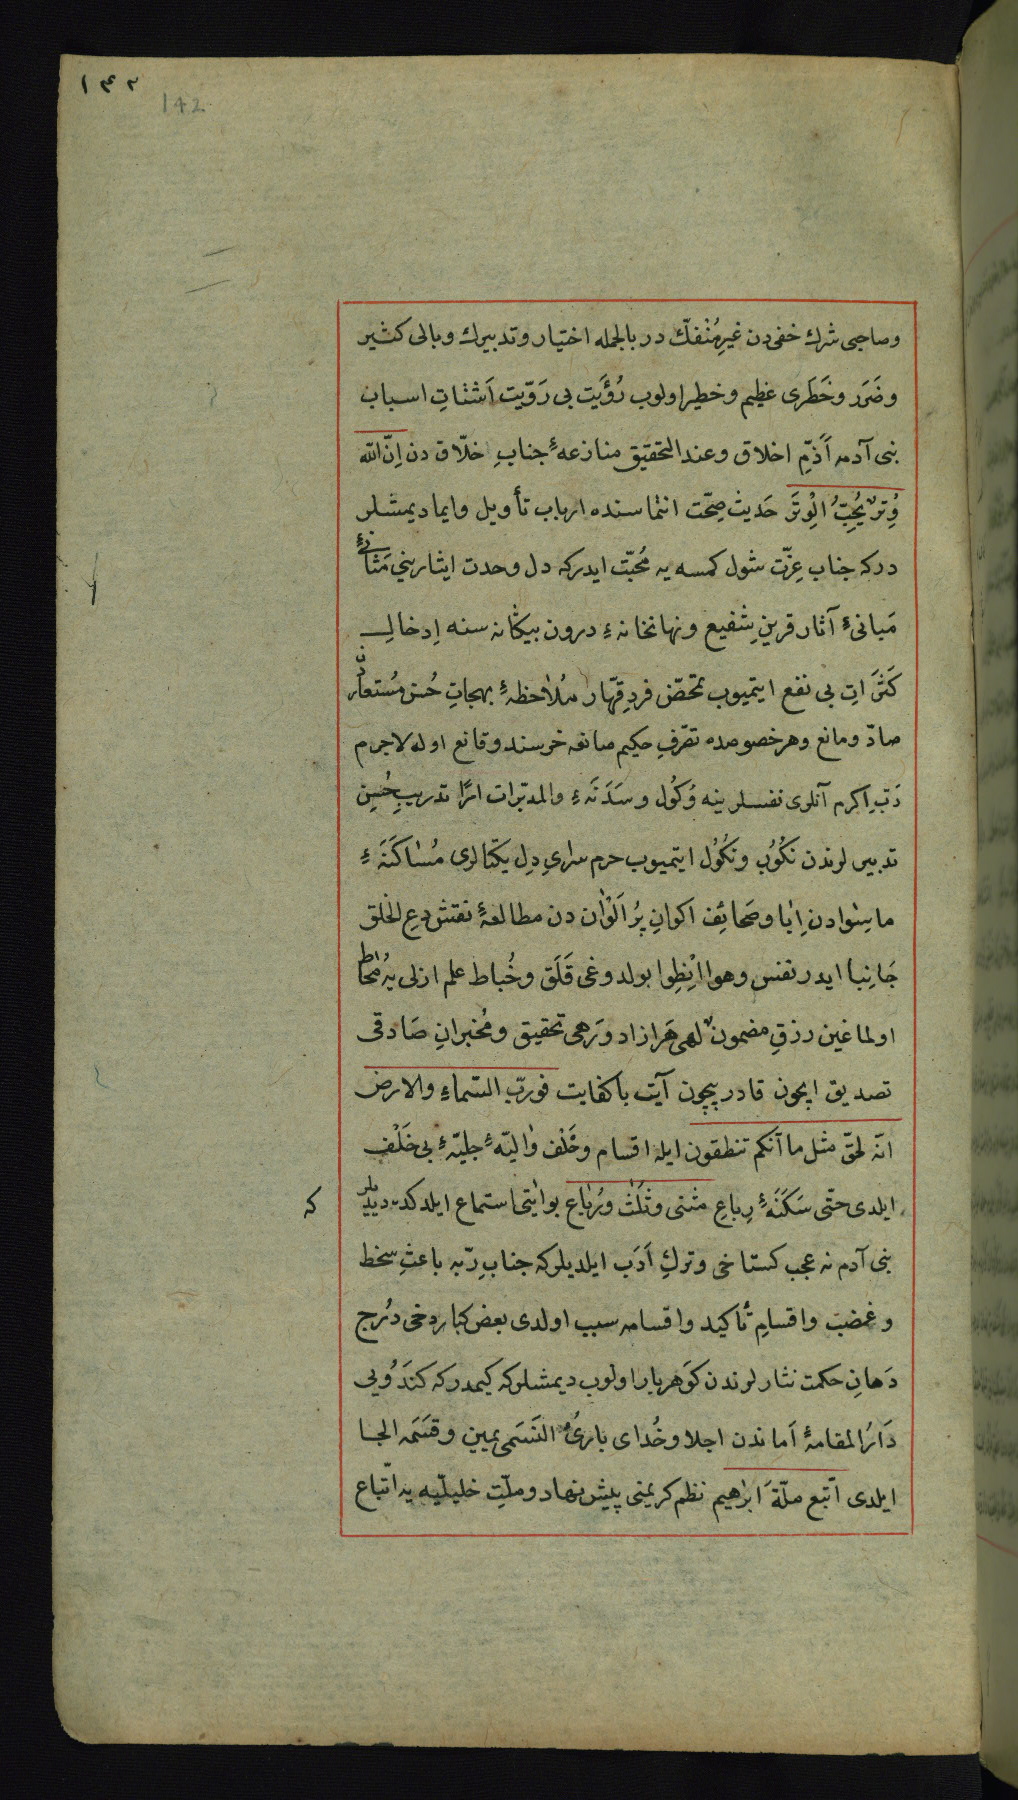 ١٤٢
142
وصاحبى شرك خفى‌دن غيرِ مُنْفكّ در بالجمله اختيار وتدبيرك وبالى كثير
وضَرَر وخَطَرى عظيم وخطير اولوب رُؤيَت بى رَوّيت اَشتاتِ اسباب
بنى آدمه اَذَمِّ اخلاق وعند التحقيق منازعهٔ جنابِ خلّاق دن اِنّ الله
وِترٌ يُحِبُّ الْوِتَر حَديث صحّت انتماسنده ارباب تأويل وايما ديمشلر
دركه جناب عِزّت شول كمسه يه مُحبّت ايدركه دل وحدت ايثارينى مَثانئ
مَبانئ آثار قرينِ شفيع ونهانخانهٔ درون بيكانه سنه اِدخالِ
كَثَراتِ بى نفع ايتميوب تمحّضِ فردِ قهّاردن مُلاحظهٔ بهجاتِ حُسنِ مُستعار
صادّ ومانع وهر خصوصده تصرّفِ حكيم صانعه خرسند وقانع اوله لاجرم
رَبِّ اكرم آنلرى نفسلرينه وُكُول وسَدَنَهٔ والمدبّرات امرًا تدريبِ حُسنِ
تدبيرلرندن نكُوب ونكُول ايتميوب حرم سراىِ دِل يكتالرى مُساكَنَهٔ
ماسِوادن اِبا وصَحائفِ اكوانِ پُر اَلْوَان دن مطالعهٔ نقش دعِ الخلق
جَانِبا ايدر نفس وهوا انْظِوا بولدوغى قَلَق وخُباط علم ازلى يه مُحاط
اولماغين رزقِ مضمونٌ لهى هَرازاد ورَهى تحقيق ومُخبرانِ صَادقى
تصديق ايچون قادر بيچون آيت باكفايت فوربّ السّماءِ والارض
انّه لحقّ مثل ما آنكم تنطقون ايله اقسام وحَلْف واليّهٔ جليّهٔ بى خَلْف
ايلدى حتّى سَكَنَهٔ رِباعِ مثنى وثُلَثَ ورُبَاع بوآيتى استماع ايلدكده ديديلر كه
بنى آدم نه عجب كستاخى وتركِ اَدَب ايلديلركه جنابِ رَبّه باعثِ سخط
وغضبَ واقسامِ تأكيد واقسامه سبب اولدى بعض كبار دخى دُرج
دَهانِ حكمت نثارلرندن كوَهربار اولوب ديمشلركه كيمدركه كنَدُويى
دَارُ المقامهٔ اَماندن اجلا وخُداى بارئ النَسَمى يمين وقسَمه الجا
ايلدى اتّبع ملّةَ ابراهيم نظم كريمنى پيش نهاد وملّتِ خليليّه يه اتّباع